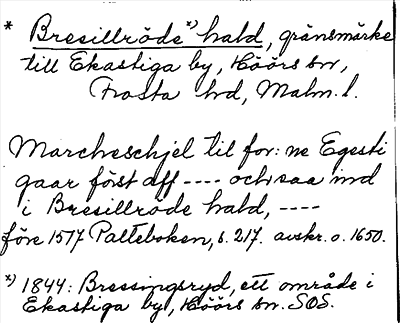 * Bresillröde *) hald, gränsmärke
till Ekastiga by, Höörs sn,
Frosta hd, Malm. l.
Marcheschjel til for: ne Egesti
gaar först aff ---- och saa ind
i Bresillröde hald, ----
före 1577 Palteboken, s. 217. avskr. o. 1650.
*) 1844: Bressingsryd, ett område i
Ekastiga by, Höörs sn. SOS.